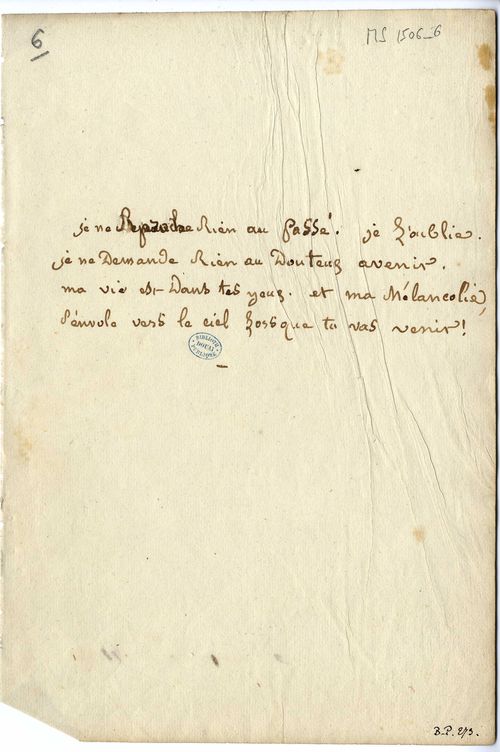 6
MS 1506_6
je ne Reproche Rien au passé. je l'oublie.
je ne Demande Rien au Douteux avenir.
ma vie est Dans tes yeux. et ma Mélancolie,
s'envole vers le ciel lorsque tu vas venir!
BIBLIOTH
DOUAI
PUBLIQUE
B.P. 273.